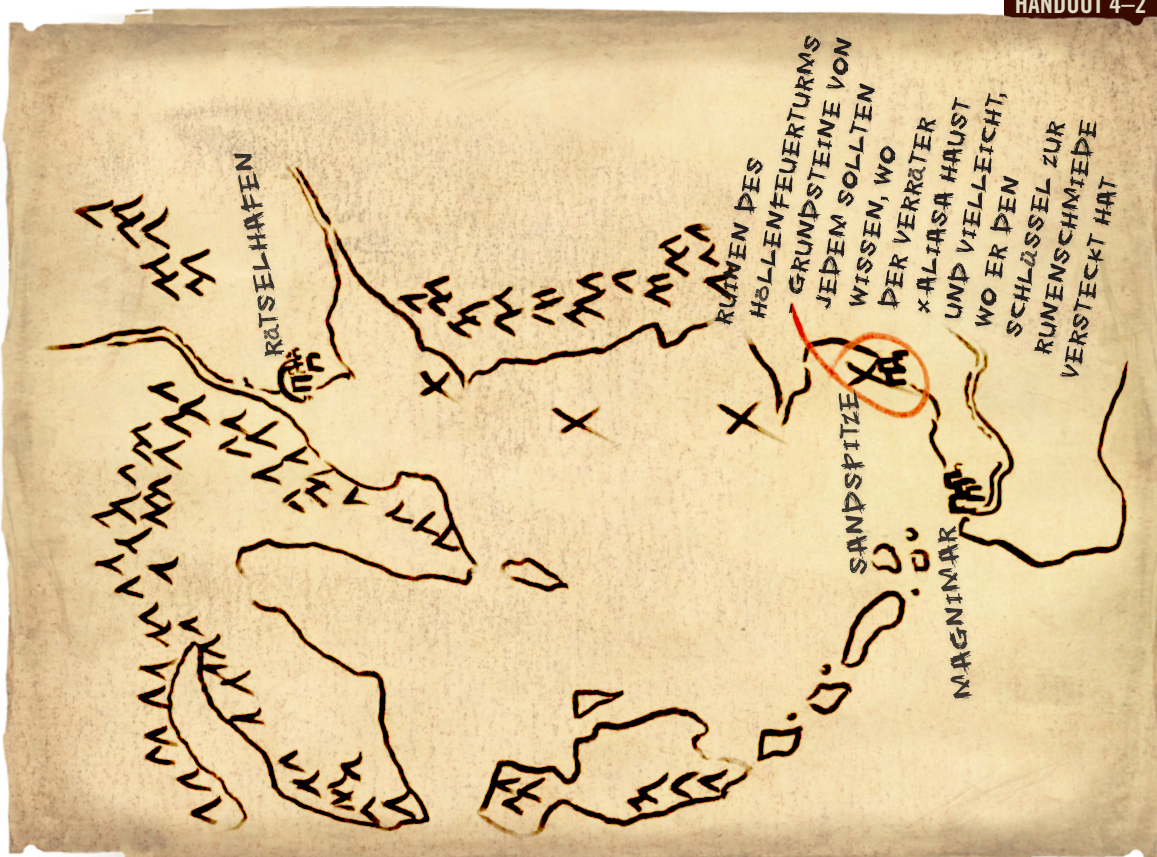 HANDOUT 4–2
RÄTSELHAFEN
RUINEN DES
HÖLLENFEUERTURMS
GRUNDSTEINE VON
JEDEM SOLLTEN
WISSEN, WO
DER VERRÄTER
XALIASA HAUST
UND VIELLEICHT,
WO ER DEN
SCHLÜSSEL ZUR
RUNENSCHMIEDE
VERSTECKT HAT
SANDSPITZE
MAGNIMAR